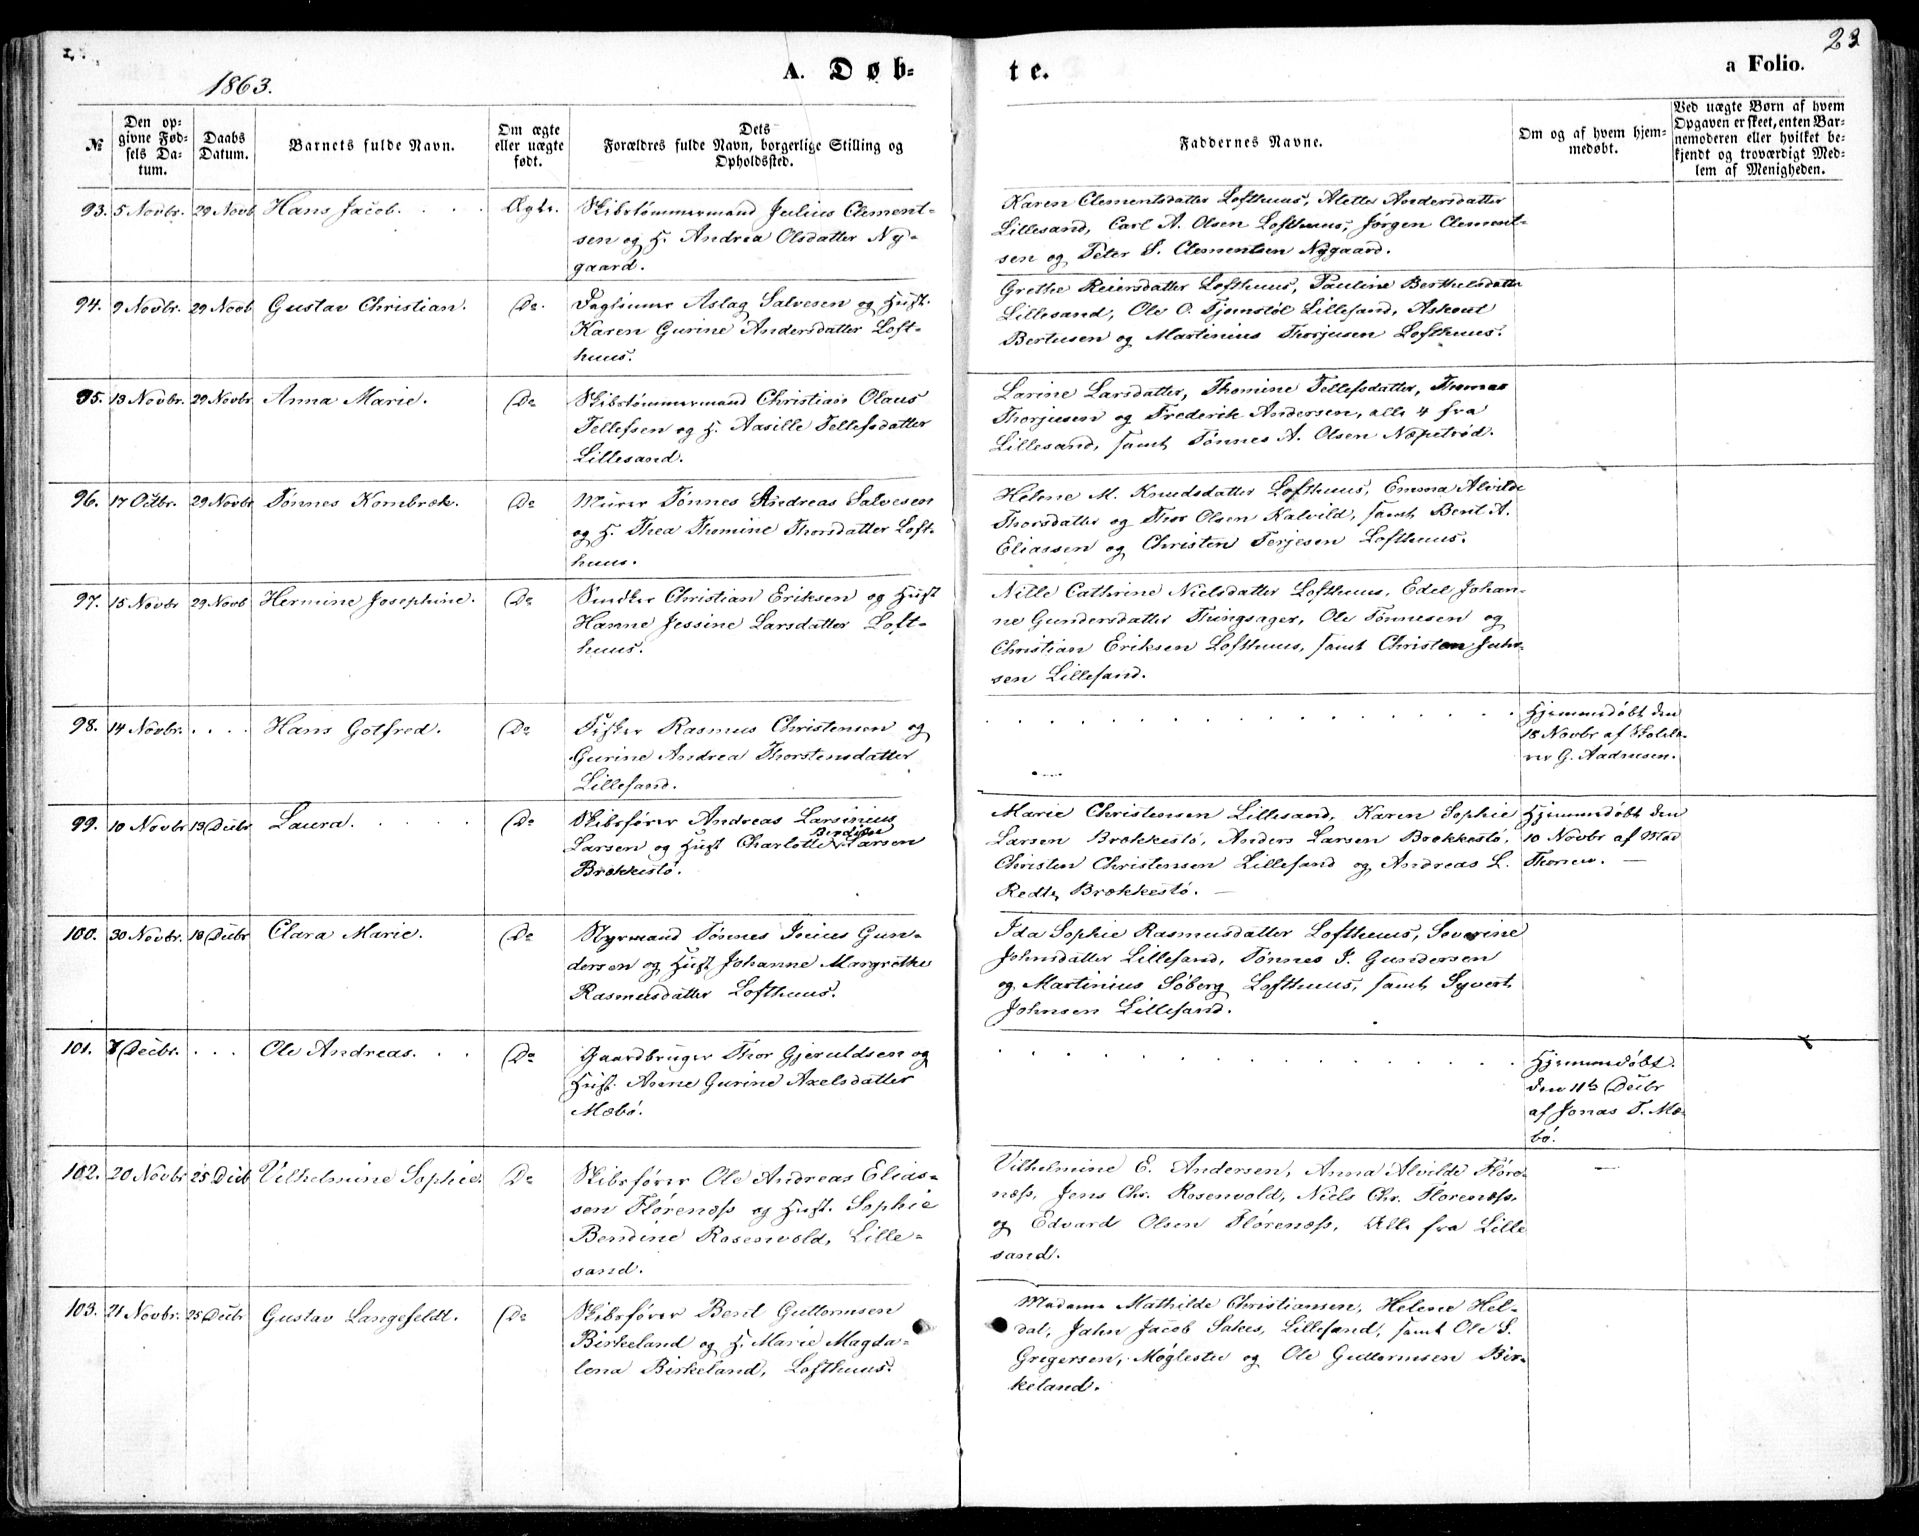 23
1863.
A. Døb-
te.
a Folio.
№
Den op-
givne Fød-
sels Da-
tum.
Daabs
Datum.
Barnets fulde Navn.
Om ægte
eller uægte
født.
Dets
Forældres fulde Navn, borgerlige Stilling og
Opholdssted.
Faddernes Navne.
Om og af hvem hjem-
medøbt.
Ved uægte Børn af hvem
Opgaven er skeet, enten Bar-
nemoderen eller hvilket be-
kjendt og troværdigt Med-
lem af Menigheden.
93. 5 Novbr. 29 Novb Hans Jacob. Ægte.
Skibstømmermand Julius Clement-
sen og H. Andrea Olsdatter Ny-
gaard.
Karen Clementsdatter Lofthuus, Alette Andersdatter
Lillesand, Carl A. Olsen Lofthuus, Jørgen Clement-
sen og Peter S. Clementsen Nygaard.
94. 9 Novbr. 29 Novb Gustav Christian. Do.
Daglinner Aslag Salvesen og Hust.
Karen Gurine Andersdatter Loft-
huus.
Grethe Reiersdatter Lofthuus, Pauline Berthelsdatter
Lillesand, Ole O. Tjomstøl Lillesand, Askout
Bertusen og Martinius Thorjusen Lofthuus.
95. 13 Novbr. 29 Novbr Anna Marie. Do
Skibstømmermand Christian Olaus
Tellefsen og H. Aasille Tellefsdatter
Lillesand.
Larine Larsdatter, Thomine Tellefsdatter, Thomas
Thorjusen og Frederik Andersen, alle 4 fra
Lillesand, samt Tønnes A. Olsen Næpetrød.
96. 17 Octbr. 29 Novbr Tønnes Kornbrek. Do
Murer Tønnes Andreas Salvesen
og H. Thea Thomine Thorsdatter Loft-
huus.
Helene M. Knudsdatter Lofthuus, Emma Alvilde
Thorsdatter og Thor Olsen Kalvild, samt Bent A.
Eliassen og Christen Terjesen Lofthuus.
97. 15 Novbr 29 Novb Hermine Josephine. Do
Snedker Christian Eriksen og Hust
Hanne Jessine Larsdatter Loft-
huus.
Nille Cathrine Nielsdatter Lofthuus, Edel Johan-
ne Gundersdatter Tingsager, Ole Tønnesen og
Christian Eriksen Lofthuus, samt Christen Juhr-
sen Lillesand.
98. 14 Novbr. . . . . Hans Gotfred. Do
Fisker Rasmus Christensen og
Gurine Andrea Thorstensdatter
Lillesand.
Hjemmedøbt den
18 Novbr af Skolelæ-
rer G. Aadnesen.
99. 10 Novbr 13 Decbr Laura. Do
Skibsfører Andreas Larsinius
Bendixe
Larsen og Hust Charlotte Larsen
Brækkestø.
Marie Christensen Lillesand, Karen Sophie
Larsen Brækkestø, Anders Larsen Brækkestø,
Christen Christensen Lillesand og Andreas L.
Redt, Brækkestø.
Hjemmedøbt den
10 Novbr af Mad
Thorsen.
100. 30 Novbr. 18 Decbr Clara Marie. Do
Styrmand Tønnes Jocius Gun-
dersen og Hust Johanne Margrethe
Rasmusdatter Lofthuus.
Ida Sophie Rasmusdatter Lofthuus, Severine
Johnsdatter Lillesand, Tønnes J. Gundersen
og Martinius Søberg Lofthuus, samt Syvert
Johnsen Lillesand.
101. 8 Decbr. . . . Ole Andreas. Do
Gaardbruger Thor Gjeruldsen og
Hust. Anne Gurine Axelsdatter
Mæbø.
Hjemmedøbt.
den 11te Decbr
af Jonas T. Mæ-
bø.
102. 20 Novbr 25 Decb Vilhelmine Sophie. Do
Skibsfører Ole Andreas Elias-
sen Flørenæss og Hust. Sophie
Bendine Rosenvold, Lille-
sand.
Vilhelmine E. Andersen, Anna Alvilde Fløre-
næss, Jens Chr. Rosenvold, Niels Chr. Flørenæss,
og Edvard Olsen Flørenæss, Alle fra Lille
sand.
103. 21 Novbr. 25 Decbr Gustav Langefeldt. Do
Skibsfører Bent Guttormsen
Birkeland og H. Marie Magda-
lena Birkeland, Lofthuus.
Madame Mathilde Christiansen, Helene Hel-
dal, Jahn Jacob Sakes, Lillesand, samt Ole S.
Gregersen, Møglestu og Ole Guttormsen Bir-
keland.